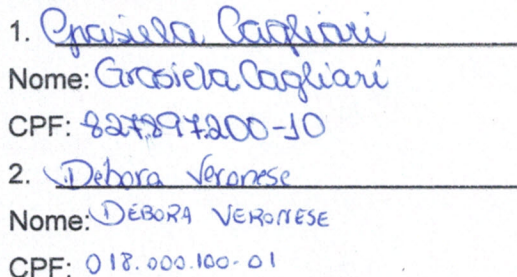 1. Grasiela Cagliari
Nome: Grasiela Cagliari
CPF: 827897200-10
2. Debora Veronese
Nome: DEBORA VERONESE
CPF: 018.000.100-01